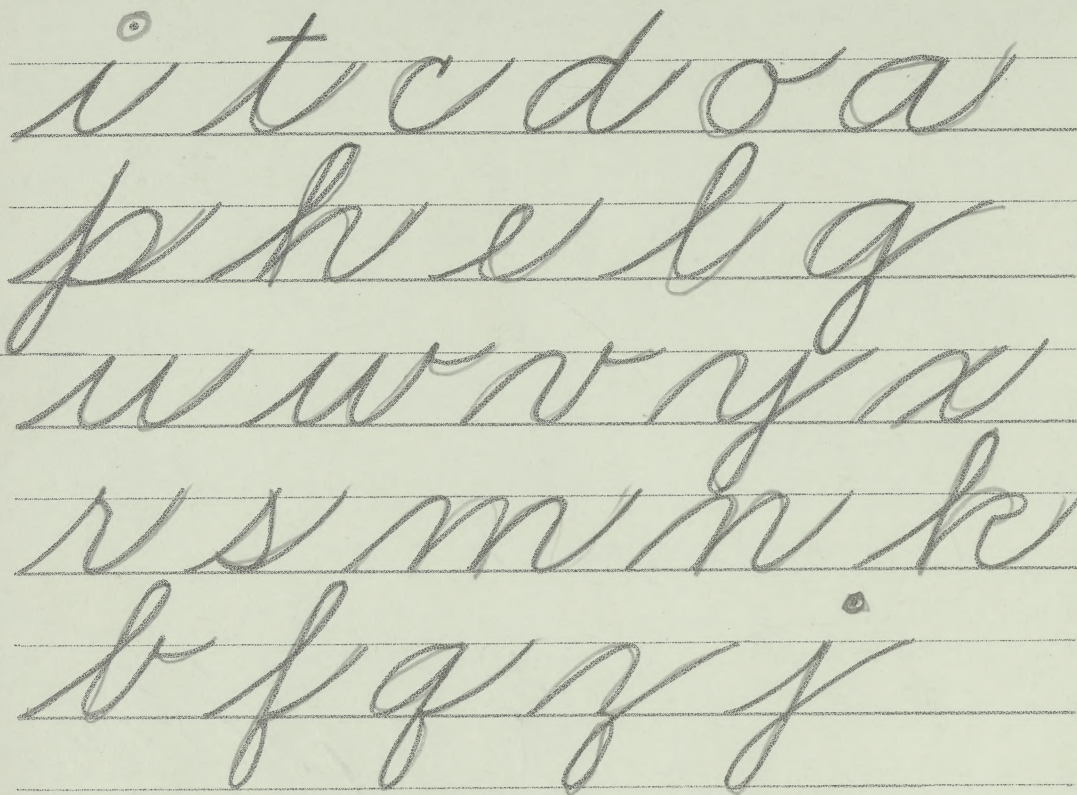 i t c d o a
p h e l g
u w v y x
r s m n k
b f q z j